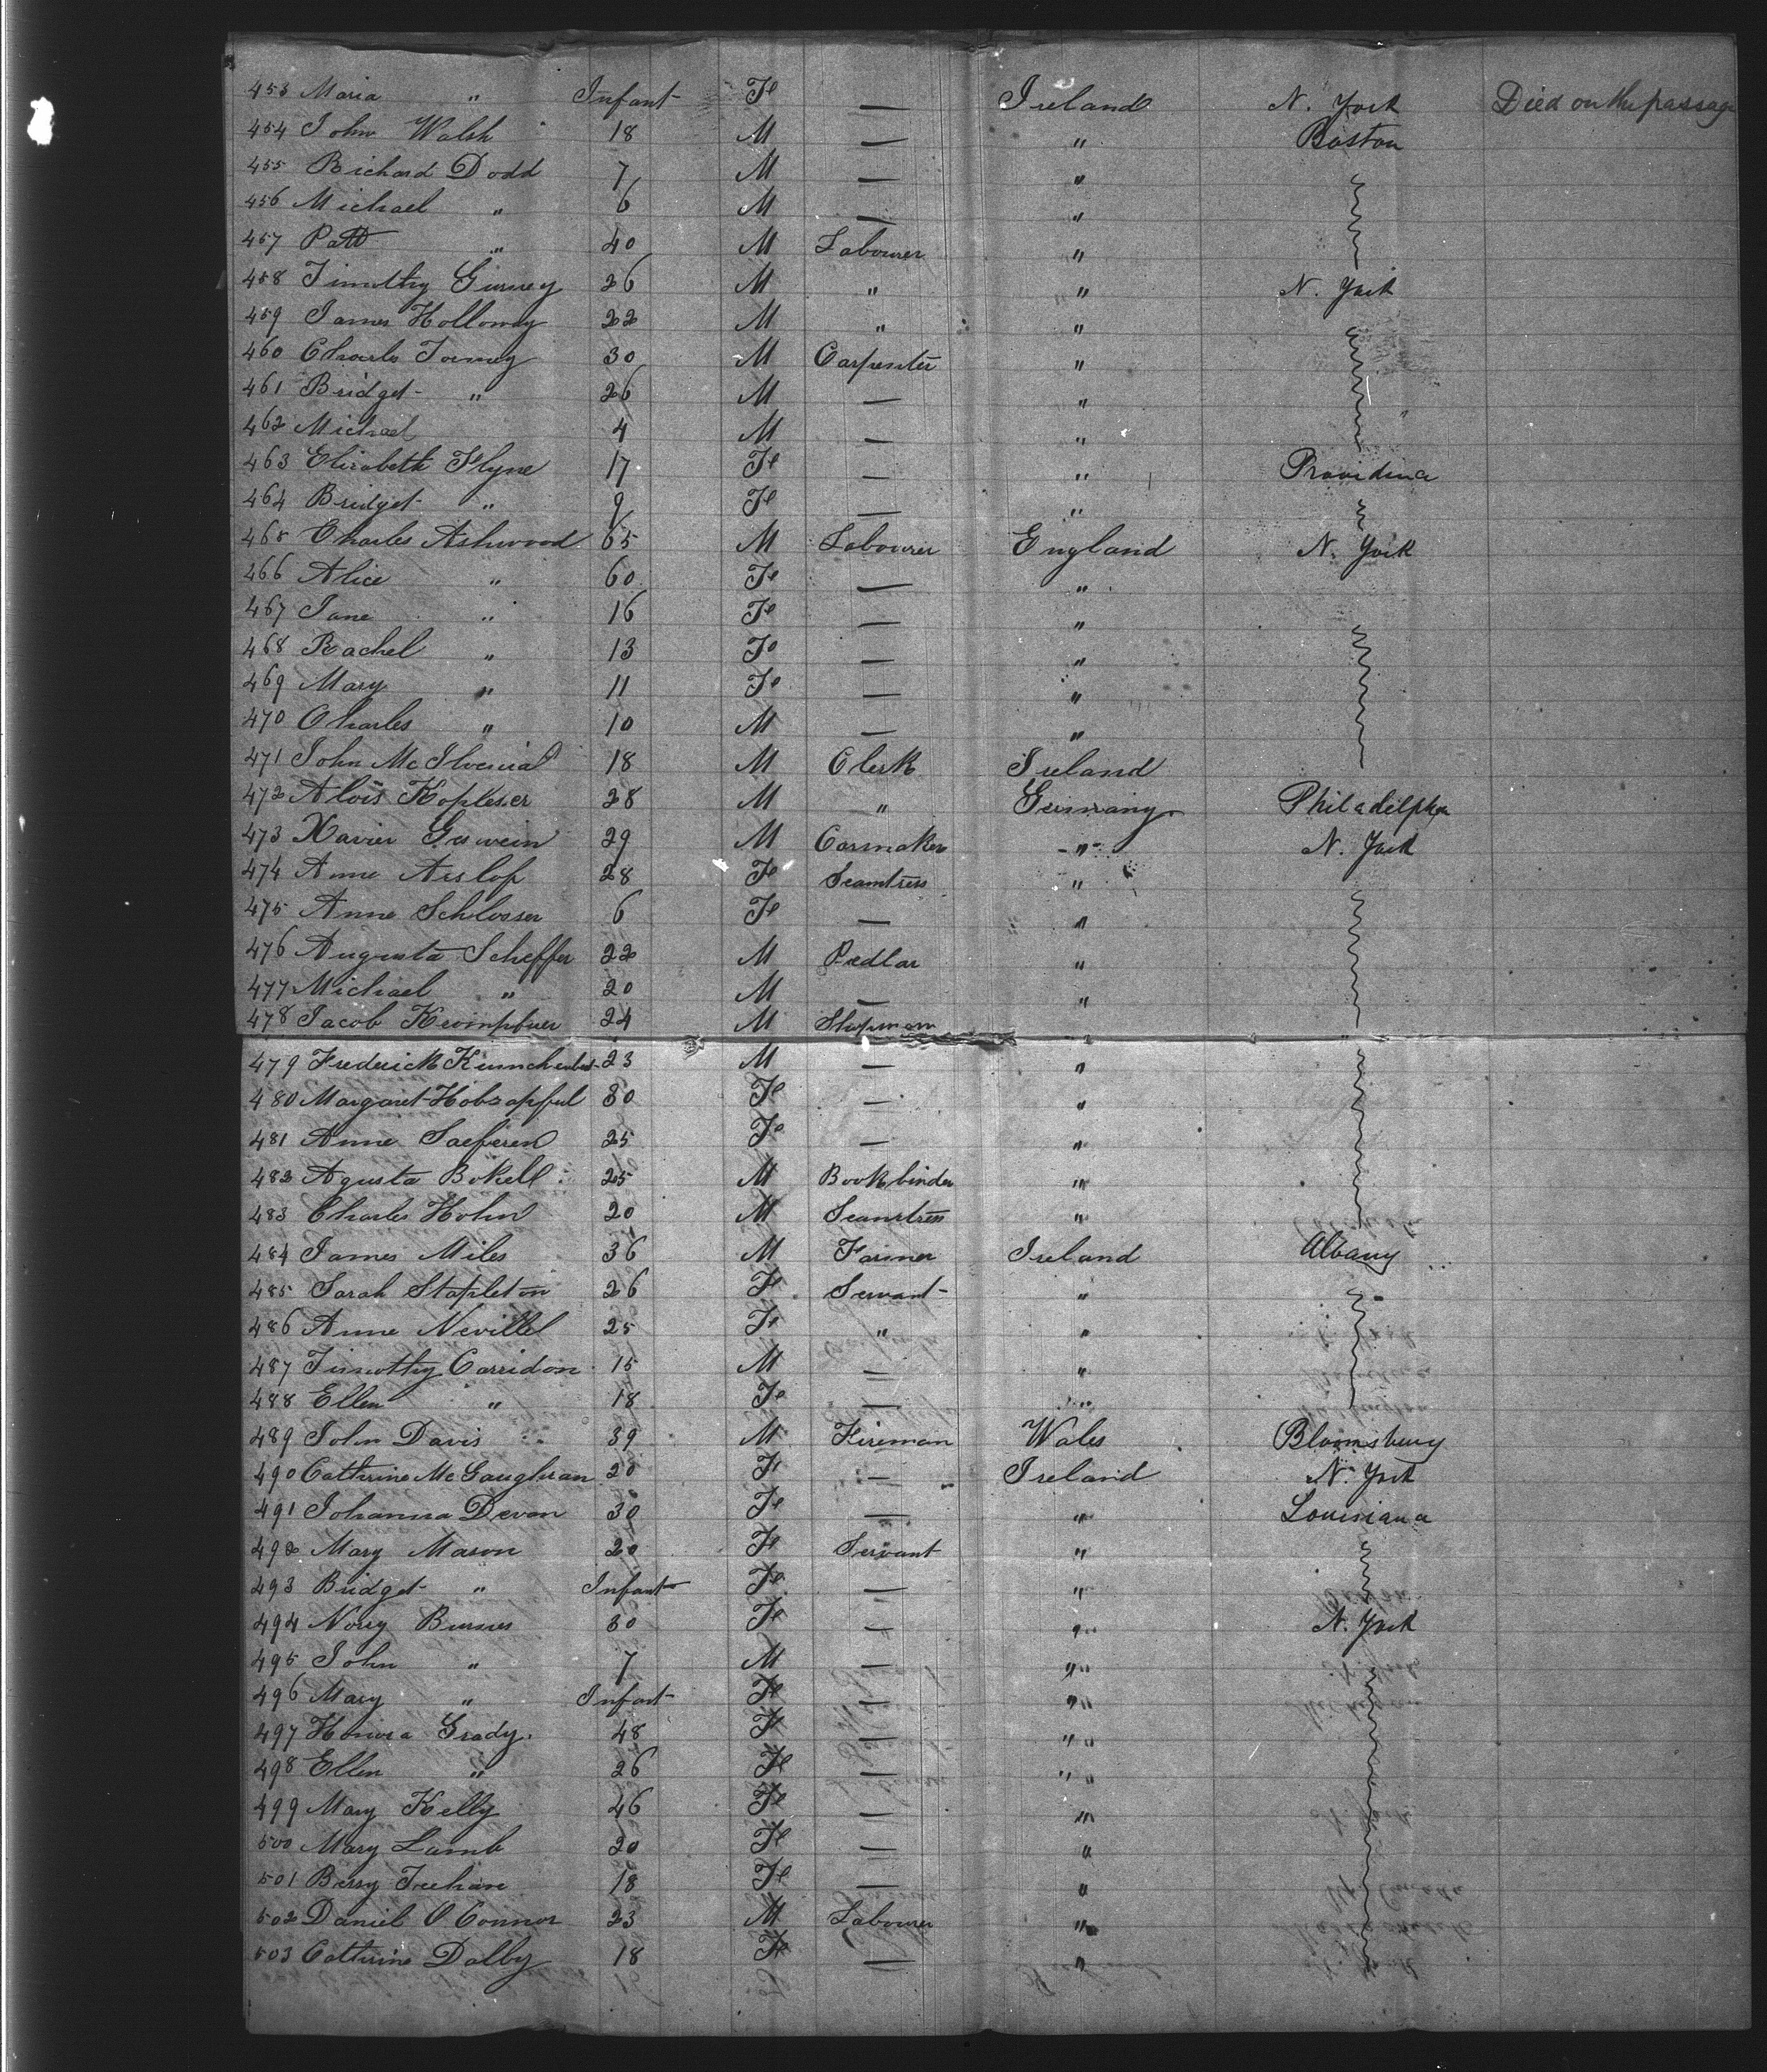 453 Maria " Infant Fe — Ireland N. York Died on the passage
454 John Walsh 18 M — " Boston
455 Richard Dodd 7 M — "
456 Michael " 6 M — "
457 Patt " 40 M Labourer "
458 Timothy Gurney 26 M " " N. York
459 James Holloway 22 M " "
460 Charles 30 M Carpenter "
461 Bridget " 26 M — "
462 Michael 4 M — "
463 Elizabeth Flyne 17 Fe — " Providence
464 Bridget " 9 Fe — "
465 Charles Ashwood 65 M Labourer England N. York
466 Alice " 60 Fe — "
467 Jane " 16 Fe — "
468 Rachel " 13 Fe — "
469 Mary " 11 Fe — "
470 Charles " 10 M — "
471 John 18 M Clerk Ireland
472 Alois 28 M " Germany Philadelphia
473 Xavier 29 M Carmaker " N. York
474 Anne 28 Fe Seamtress "
475 Anne Schlosser 6 Fe — "
476 Augusta Scheffer 22 M Pedlar "
477 Michael " 20 M — "
478 Jacob 24 M "
479 Frederick 23 M — "
480 Margaret 30 Fe — "
481 Anne 25 Fe — "
482 Agusta Bokell 25 M Bookbinder "
483 Charles Hohn 20 M Seamstress "
484 James Miles 36 M Farmer Ireland Albany
485 Sarah Stapleton 26 Fe Servant "
486 Anne Nevills 25 Fe " "
487 Timothy Corridon 15 M — "
488 Ellen " 18 Fe — "
489 John Davis 39 M Fireman Wales Bloomsbury
490 Cathrine McGaughran 20 Fe — Ireland N. York
491 Johanna Devan 30 Fe — " Louisiana
492 Mary Mason 20 Fe Servant "
493 Bridget " Infant Fe — "
494 Nory Burnes 30 Fe — " N. York
495 John " 7 M — "
496 Mary " Infant Fe — "
497 Honora Grady 48 Fe — "
498 Ellen " 26 Fe — "
499 Mary Kelly 46 Fe — "
500 Mary Lamb 20 Fe — "
501 Bessy 18 Fe — "
502 Daniel O Connor 23 M Labourer "
503 Cathrine Dalby 18 Fe — "